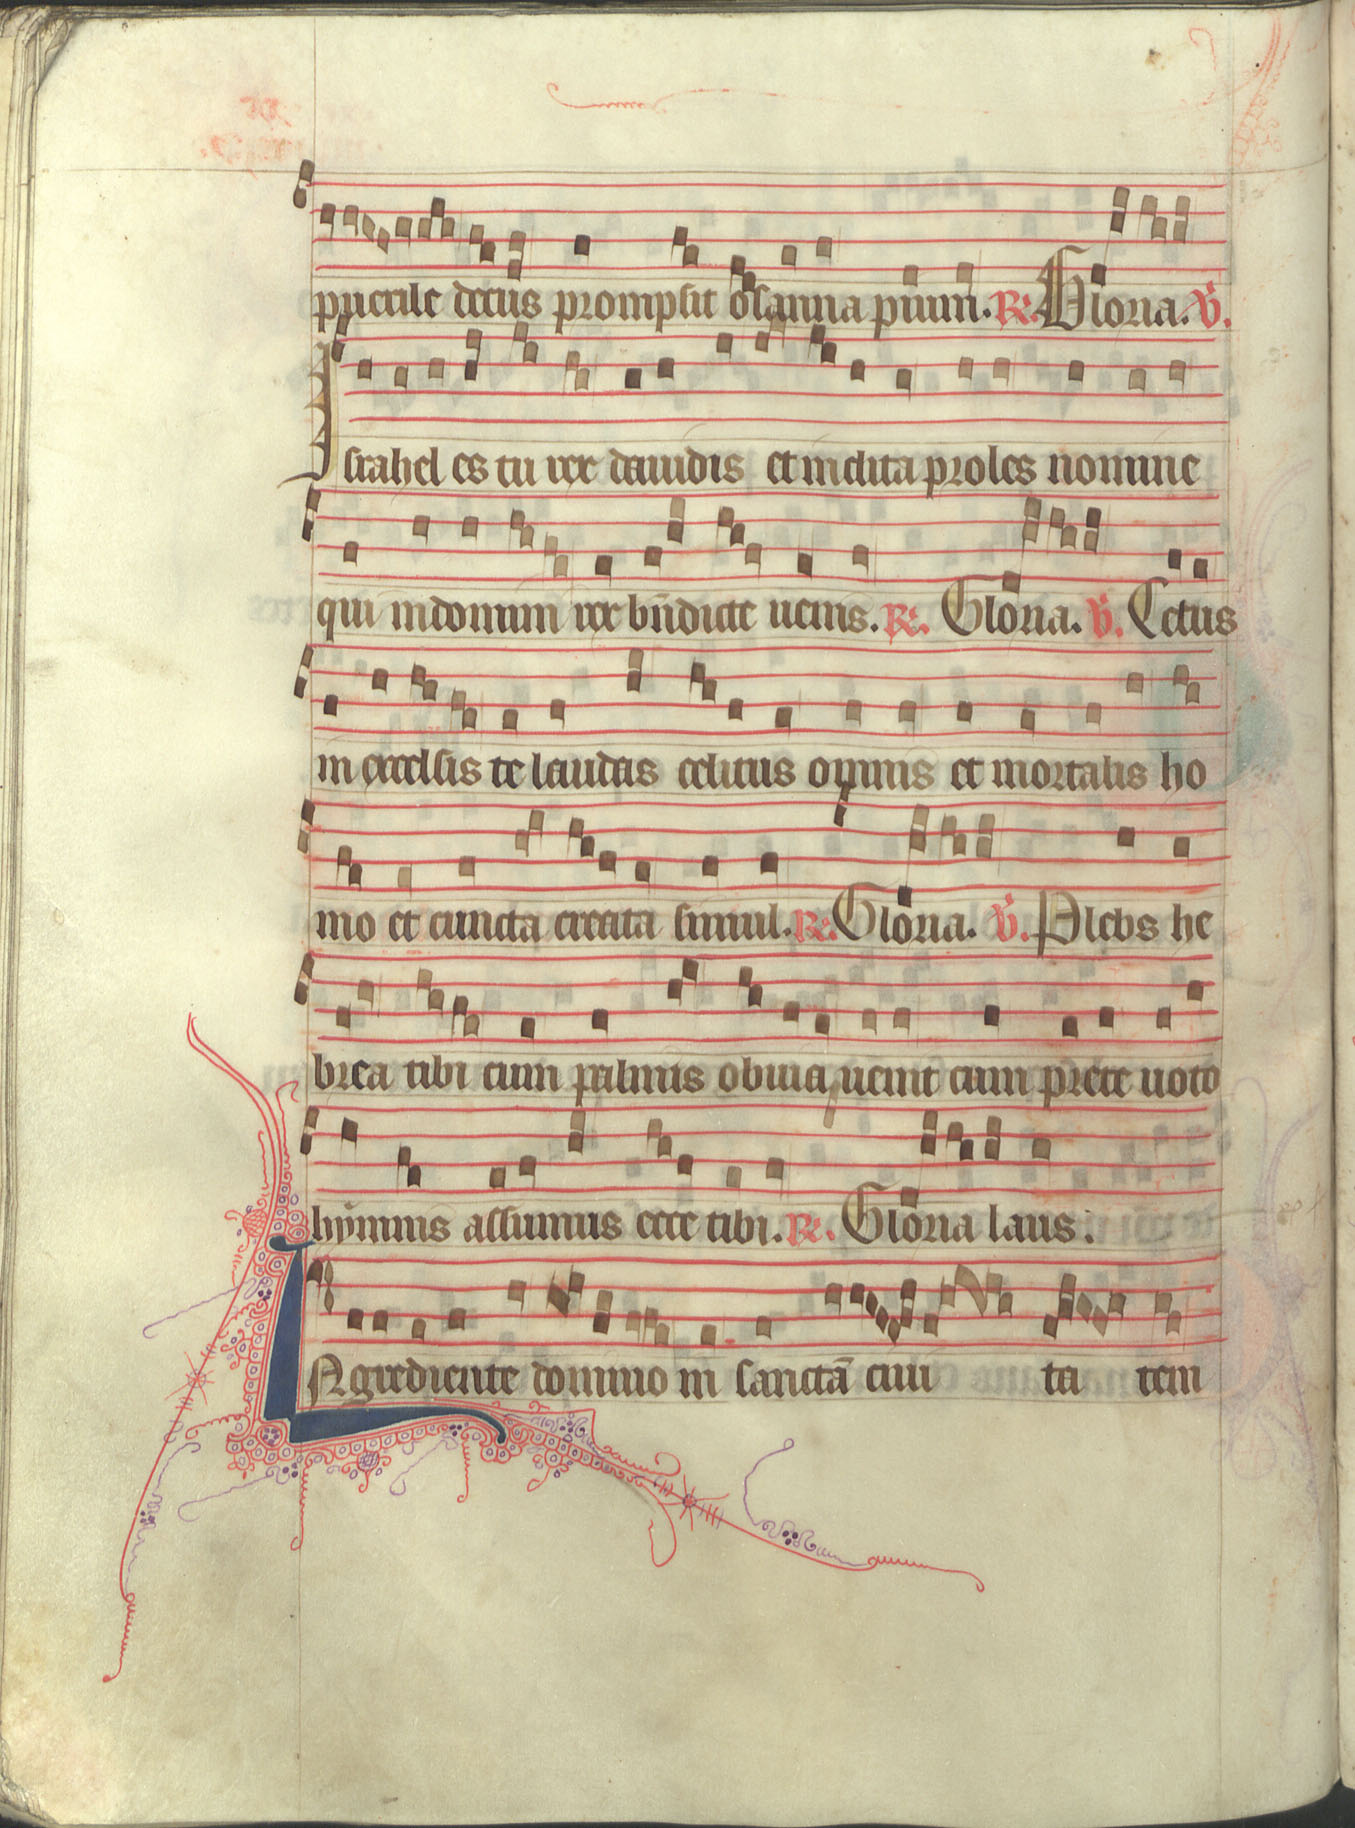 puerile decus prompsit osanna pium. R. Gloria. V.
Israhel es tu rex dauidis et inclita proles nomine
qui in domini rex bn̄dicte uenis. R. Gloria. V. Cetus
in excelsis te laudas celitus omnis et mortalis ho
mo et cuncta creata simul. R. Gloria. V. Plebs he
brea tibi cum palmis obuia uenit cum prece uoto
hymnis assumus ecce tibi. R. Gloria laus.
INgrediente domino in sanctā ciui ta tem